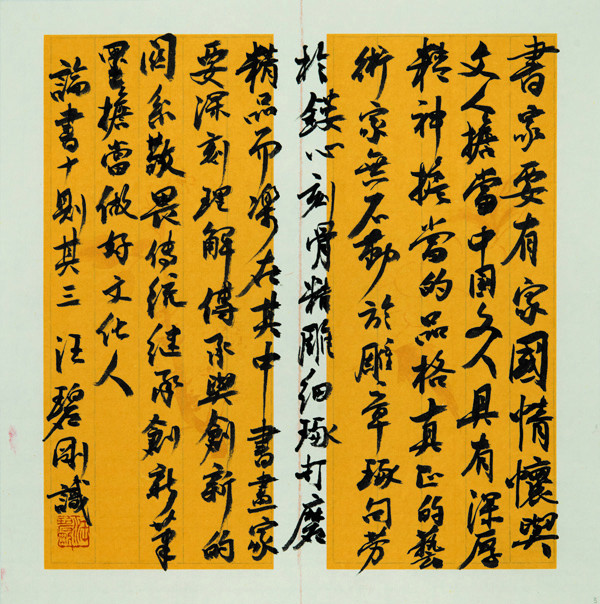 書家要有家國情懷與
文人擔當中国文人具有深厚
精神擔當的品格真正的藝
術家無不勤於雕章琢句劳
於鏤心刻骨精雕细琢打磨
精品而樂在其中書畫家
要深刻理解傳承與創新的
関系敬畏傳統继承創新筆
墨擔當做好文化人
論書十則其三 汪碧剛識